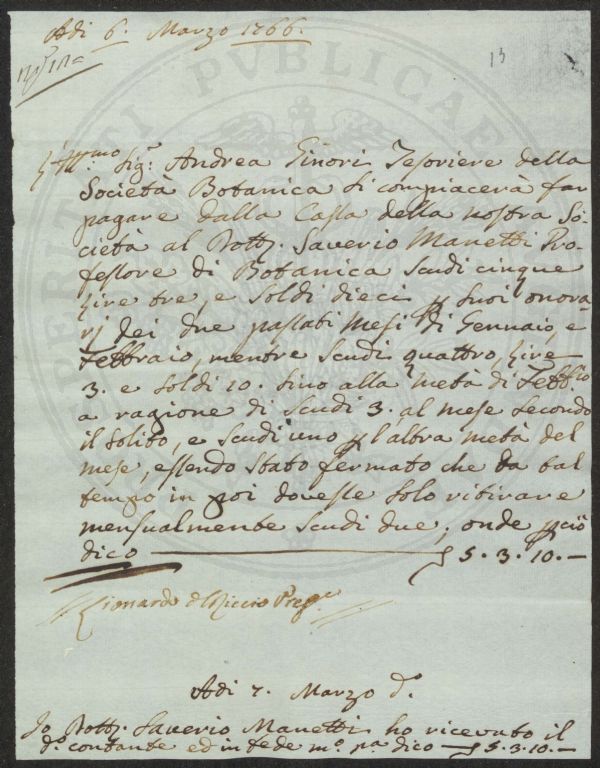 Adi 6. Marzo 1766.
13
Ill.mo Sig.r Andrea Ginori Tesoriere della
Società Botanica si compiacerà far
pagare dalla Cassa della nostra So-
cietà al Dott.r Saverio Manetti Pro-
fessore di Botanica Scudi cinque
Lire tre, e Soldi dieci p suoi onora-
rj dei due passati Mesi di Gennaio, e
Febbraio, mentre Scudi quattro, Lire
3. e Soldi 10. sino alla metà di Febb.io
a ragione di Scudi 3. al mese secondo
il solito, e Scudi uno p l'altra metà del
mese, essendo stato fermato che da tal
tempo in poi dovesse solo ritirare
mensualmente Scudi due; onde p ciò
dico — 5. 3. 10. —
Lionardo del Riccio
Adi 7. Marzo d.o
Io Dott.r Saverio Manetti ho ricevuto il
d.o contante ed in fede m.o p.a dico — 5. 3. 10. —